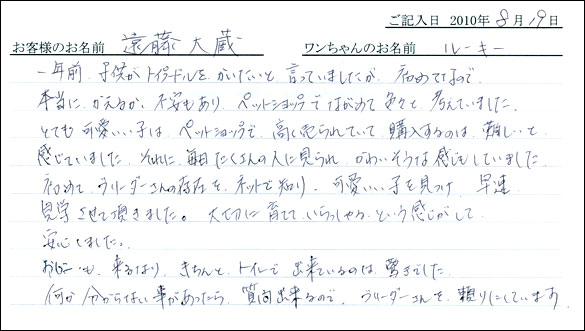 ご記入日 2010年 8月19日
お客様のお名前 遠藤大蔵 ワンちゃんのお名前 ルーキー
一年前、子供がトイプードルをかいたいと言っていましたが、初めてなので
本当にかえるか、不安もあり、ペットショップでながめて色々と考えていました。
とても可愛いい子は、ペットショップで、高く売られていて、購入するのは、難しいと
感じていました。それに、毎日たくさんの人に見られ、かわいそうな感じもしていました。
初めて、ブリーダーさんの存在を、ネットで知り、可愛いい子を見つけ、早速
見学させて頂きました。大切に育てていらっしゃるという感じがして、
安心しました。
も、来るなり、きちんと、トイレで出来ているのは、驚きでした。
何か分からない事があったら、質問出来るので、ブリーダーさんを、頼りにしています